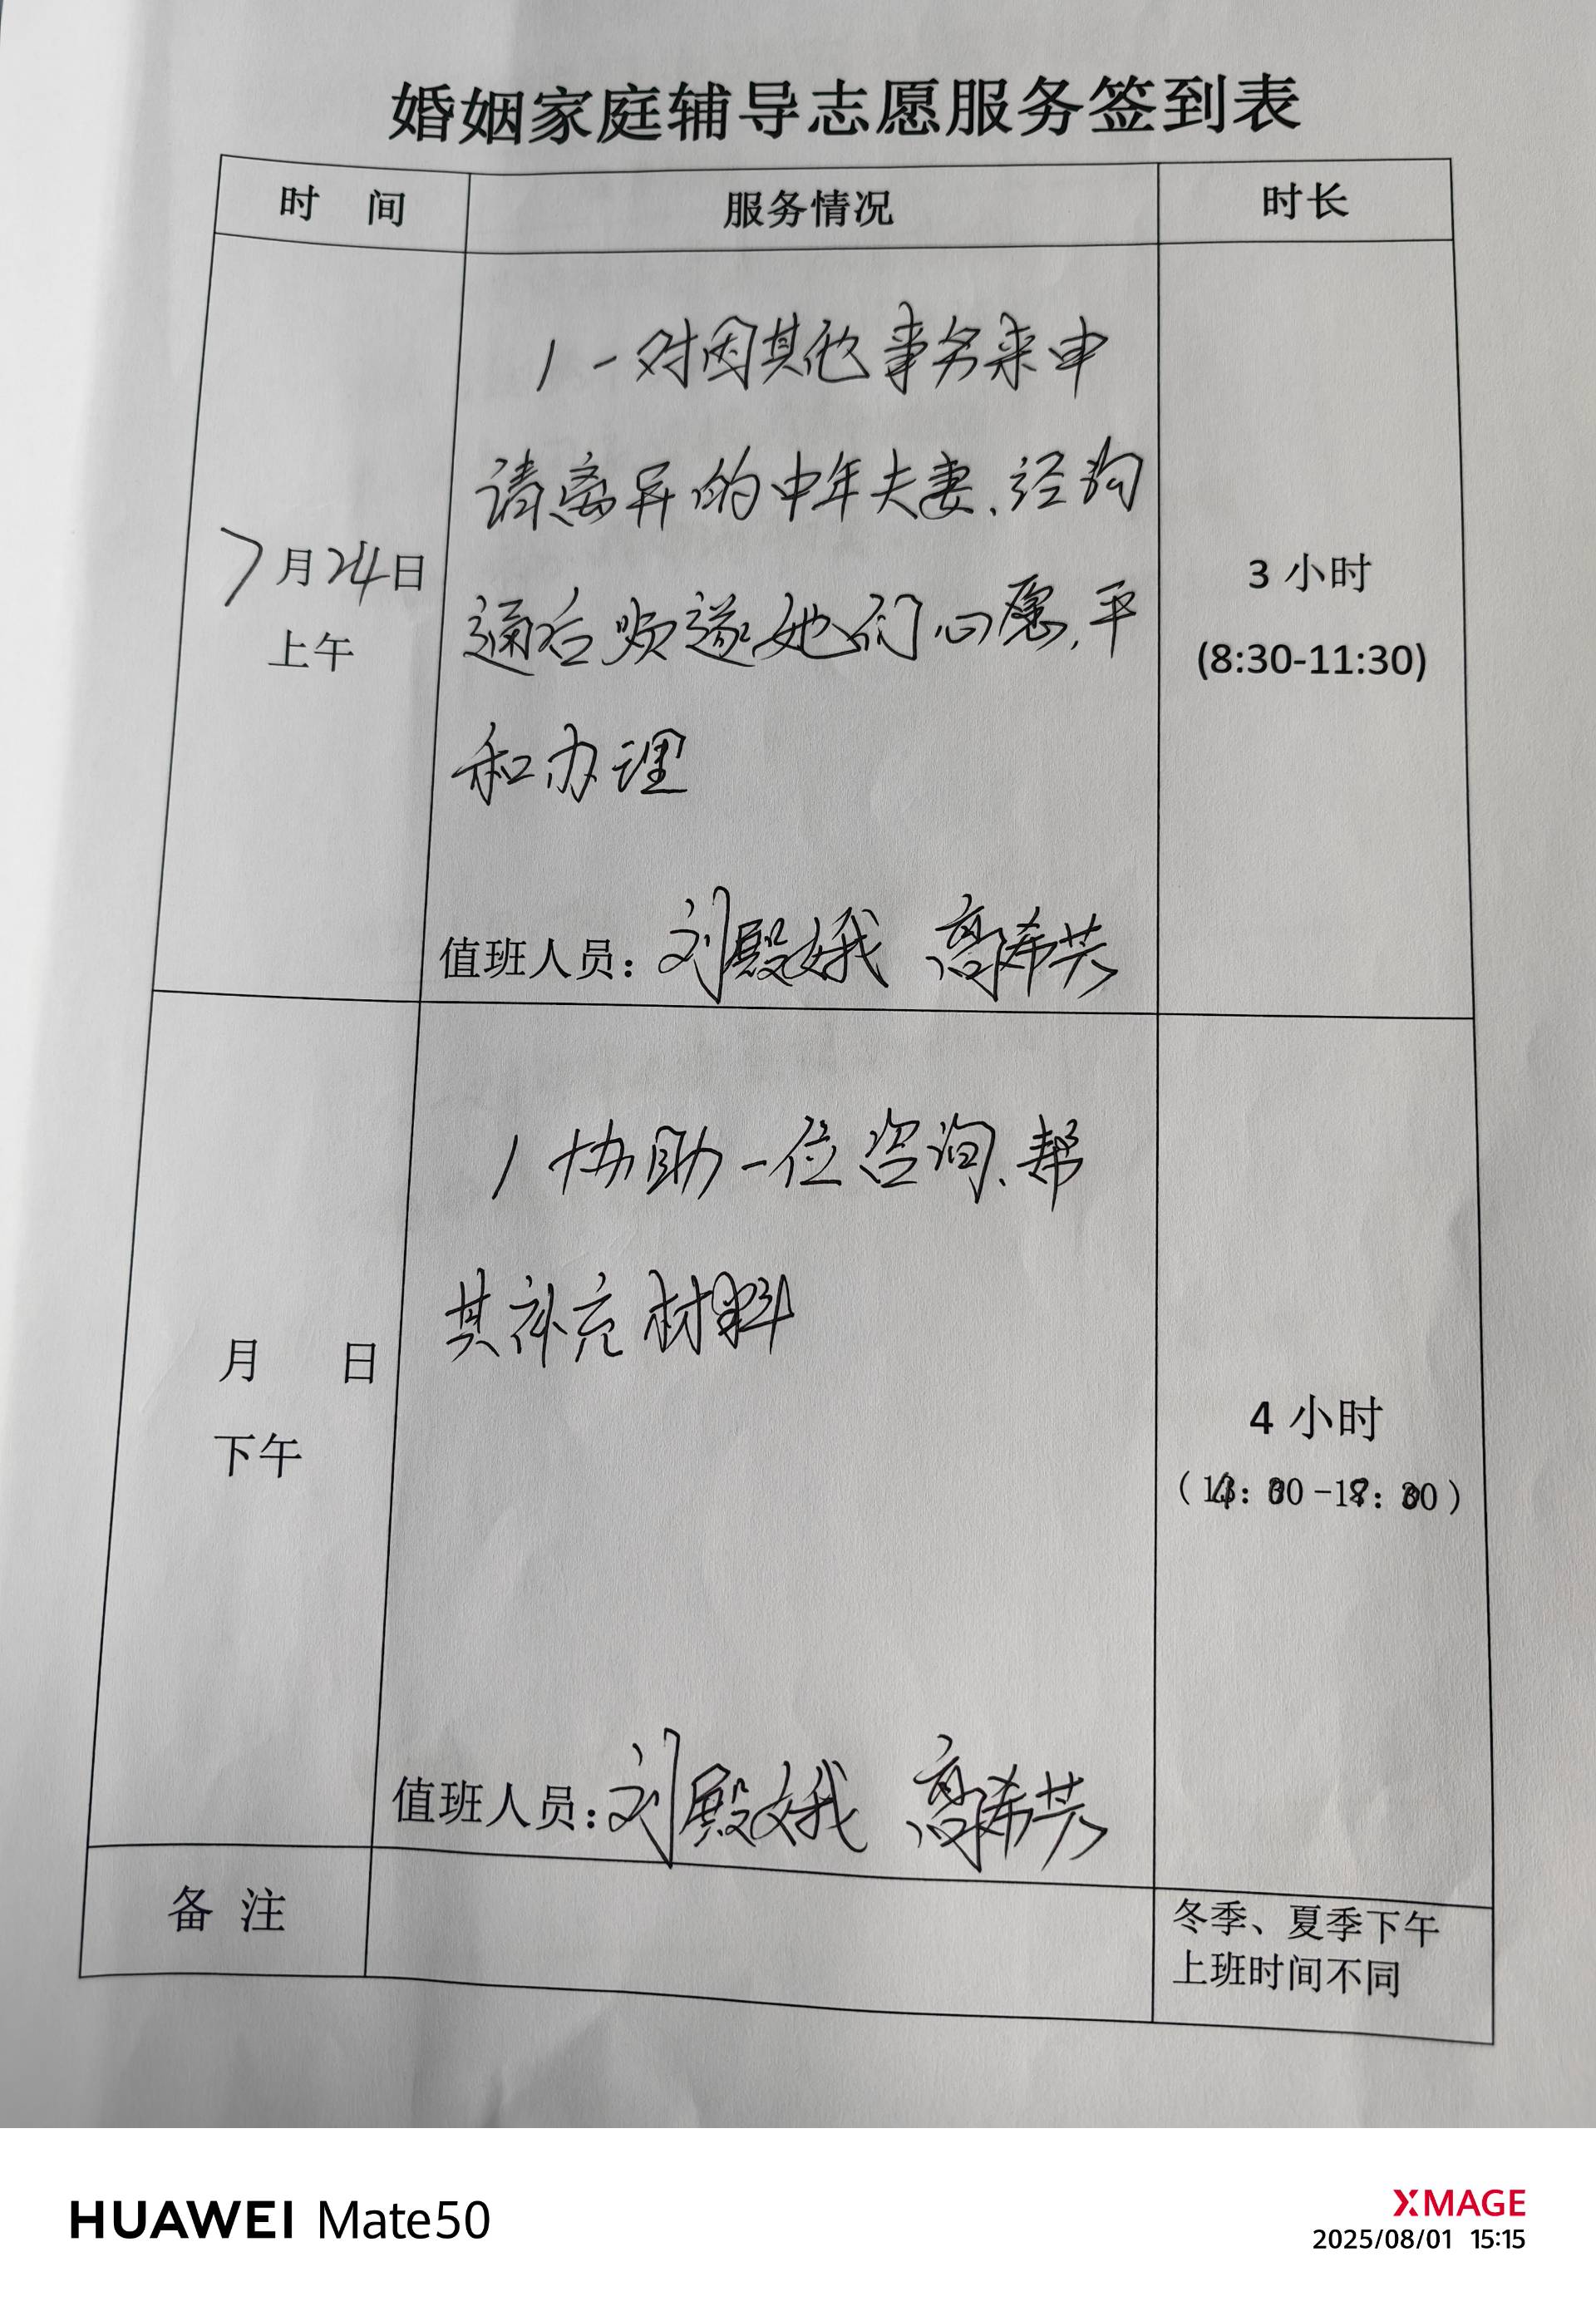 婚姻家庭辅导志愿服务签到表
时 间 服务情况 时长
7月24日
上午
1 一对因其他事务来申
请离异的中年夫妻、经沟
通后顺遂她们心愿,平
和办理
值班人员：刘殿娥 高希芸
3 小时
(8:30-11:30)
月 日
下午
1 协助一位咨询、帮
其补充材料
值班人员：刘殿娥 高希芸
4 小时
备 注
冬季、夏季下午
上班时间不同
HUAWEI Mate50
XMAGE
2025/08/01 15:15